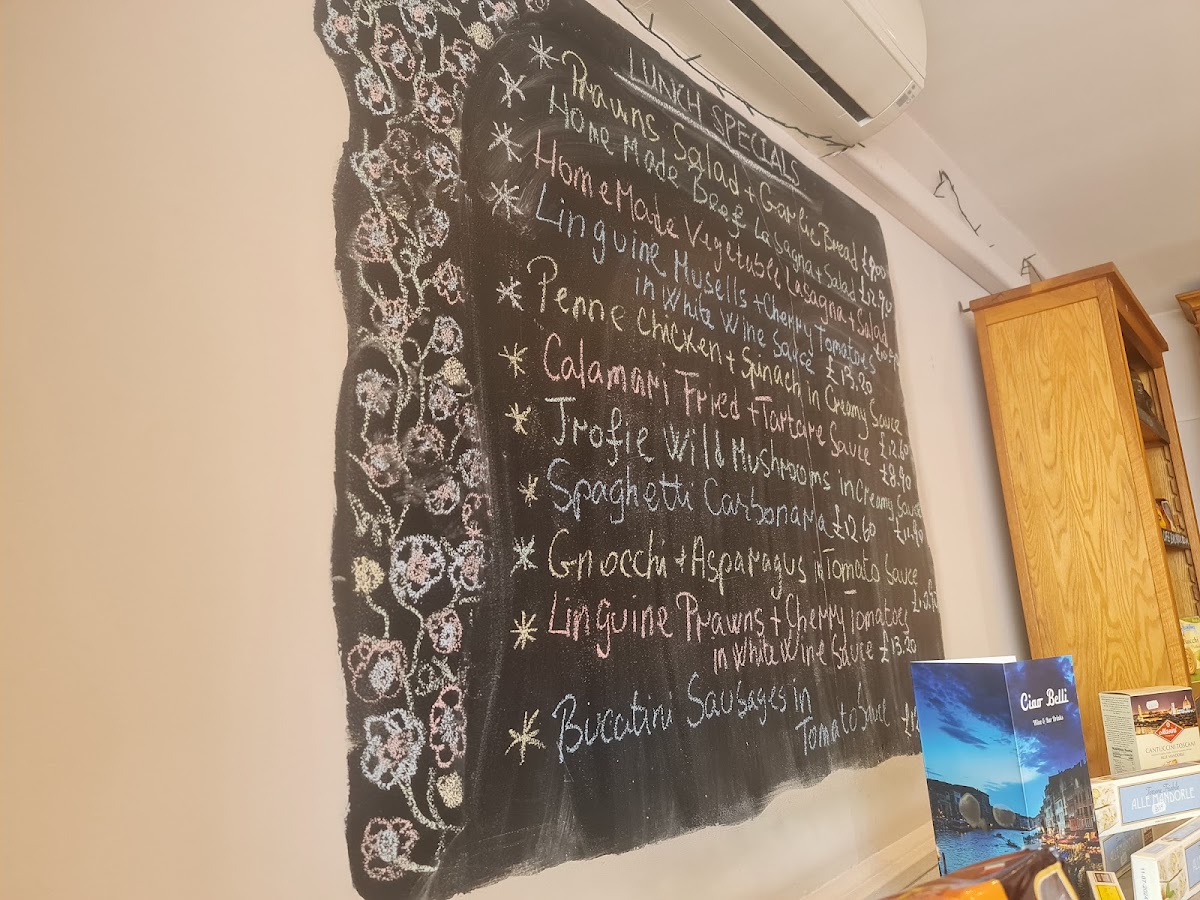 LUNCH SPECIALS
Prawns Salad + Garlic Bread £9.00
Home Made Beef Lasagna + Salad £12.90
Home Made Vegetable Lasagna + Salad
Linguine Musells + Cherry Tomatoes
in White Wine Sauce £13.20
Penne chicken + Spinach in Creamy Sauce
£12.60
Calamari Fried + Tartare Sauce £8.90
Trofie Wild Mushrooms in Creamy Sauce
£11.90
Spaghetti Carbonara £12.60
Gnocchi + Asparagus in Tomato Sauce
£12.90
Linguine Prawns + Cherry Tomatoes
in White Wine Sauce £13.20
Bucatini Sausages in
Tomato Sauce
Ciao Belli
Wine & Bar Drinks
CANTUCCINI TOSCANI
ALLE MANDORLE